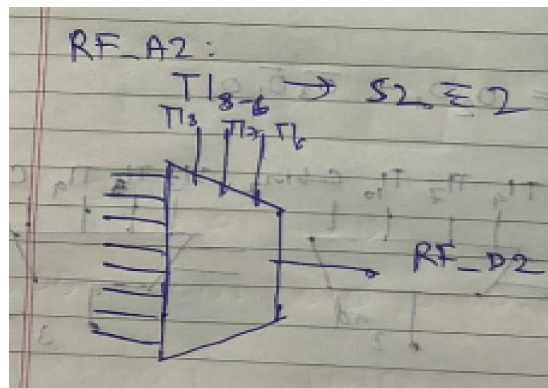 RF_A2:
TI₈₋₆ → S2 Σ 2
TI₈ TI₇ TI₆
RF_D2